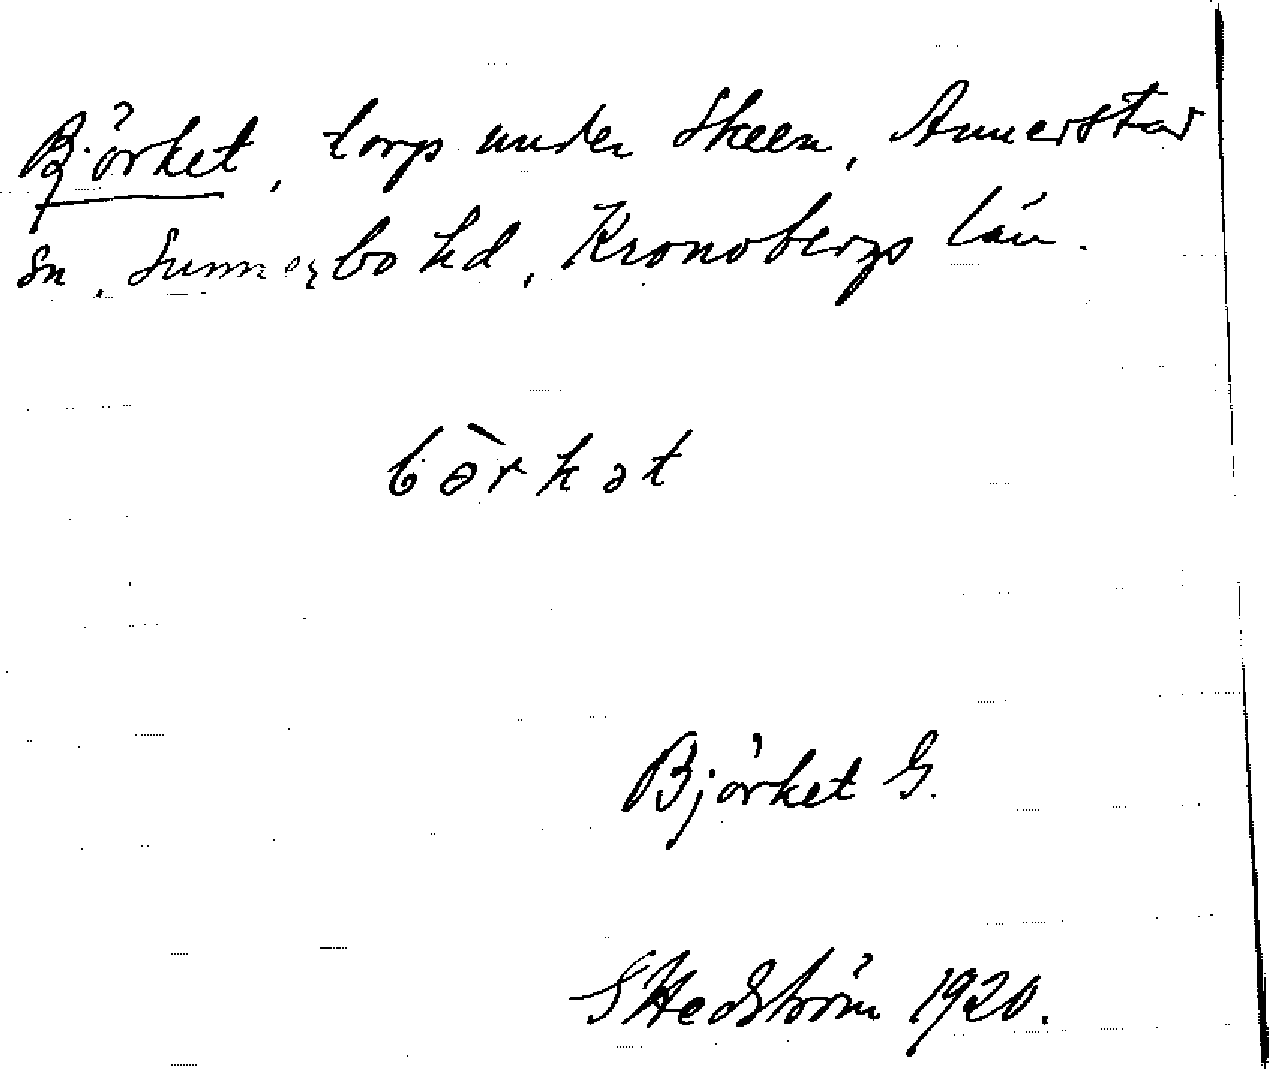 Björket, torp under Skeen, Annerstad
sn, Sunnerbo hd, Kronobergs län.
bèrkət
Björket G.
S Hedström 1920.